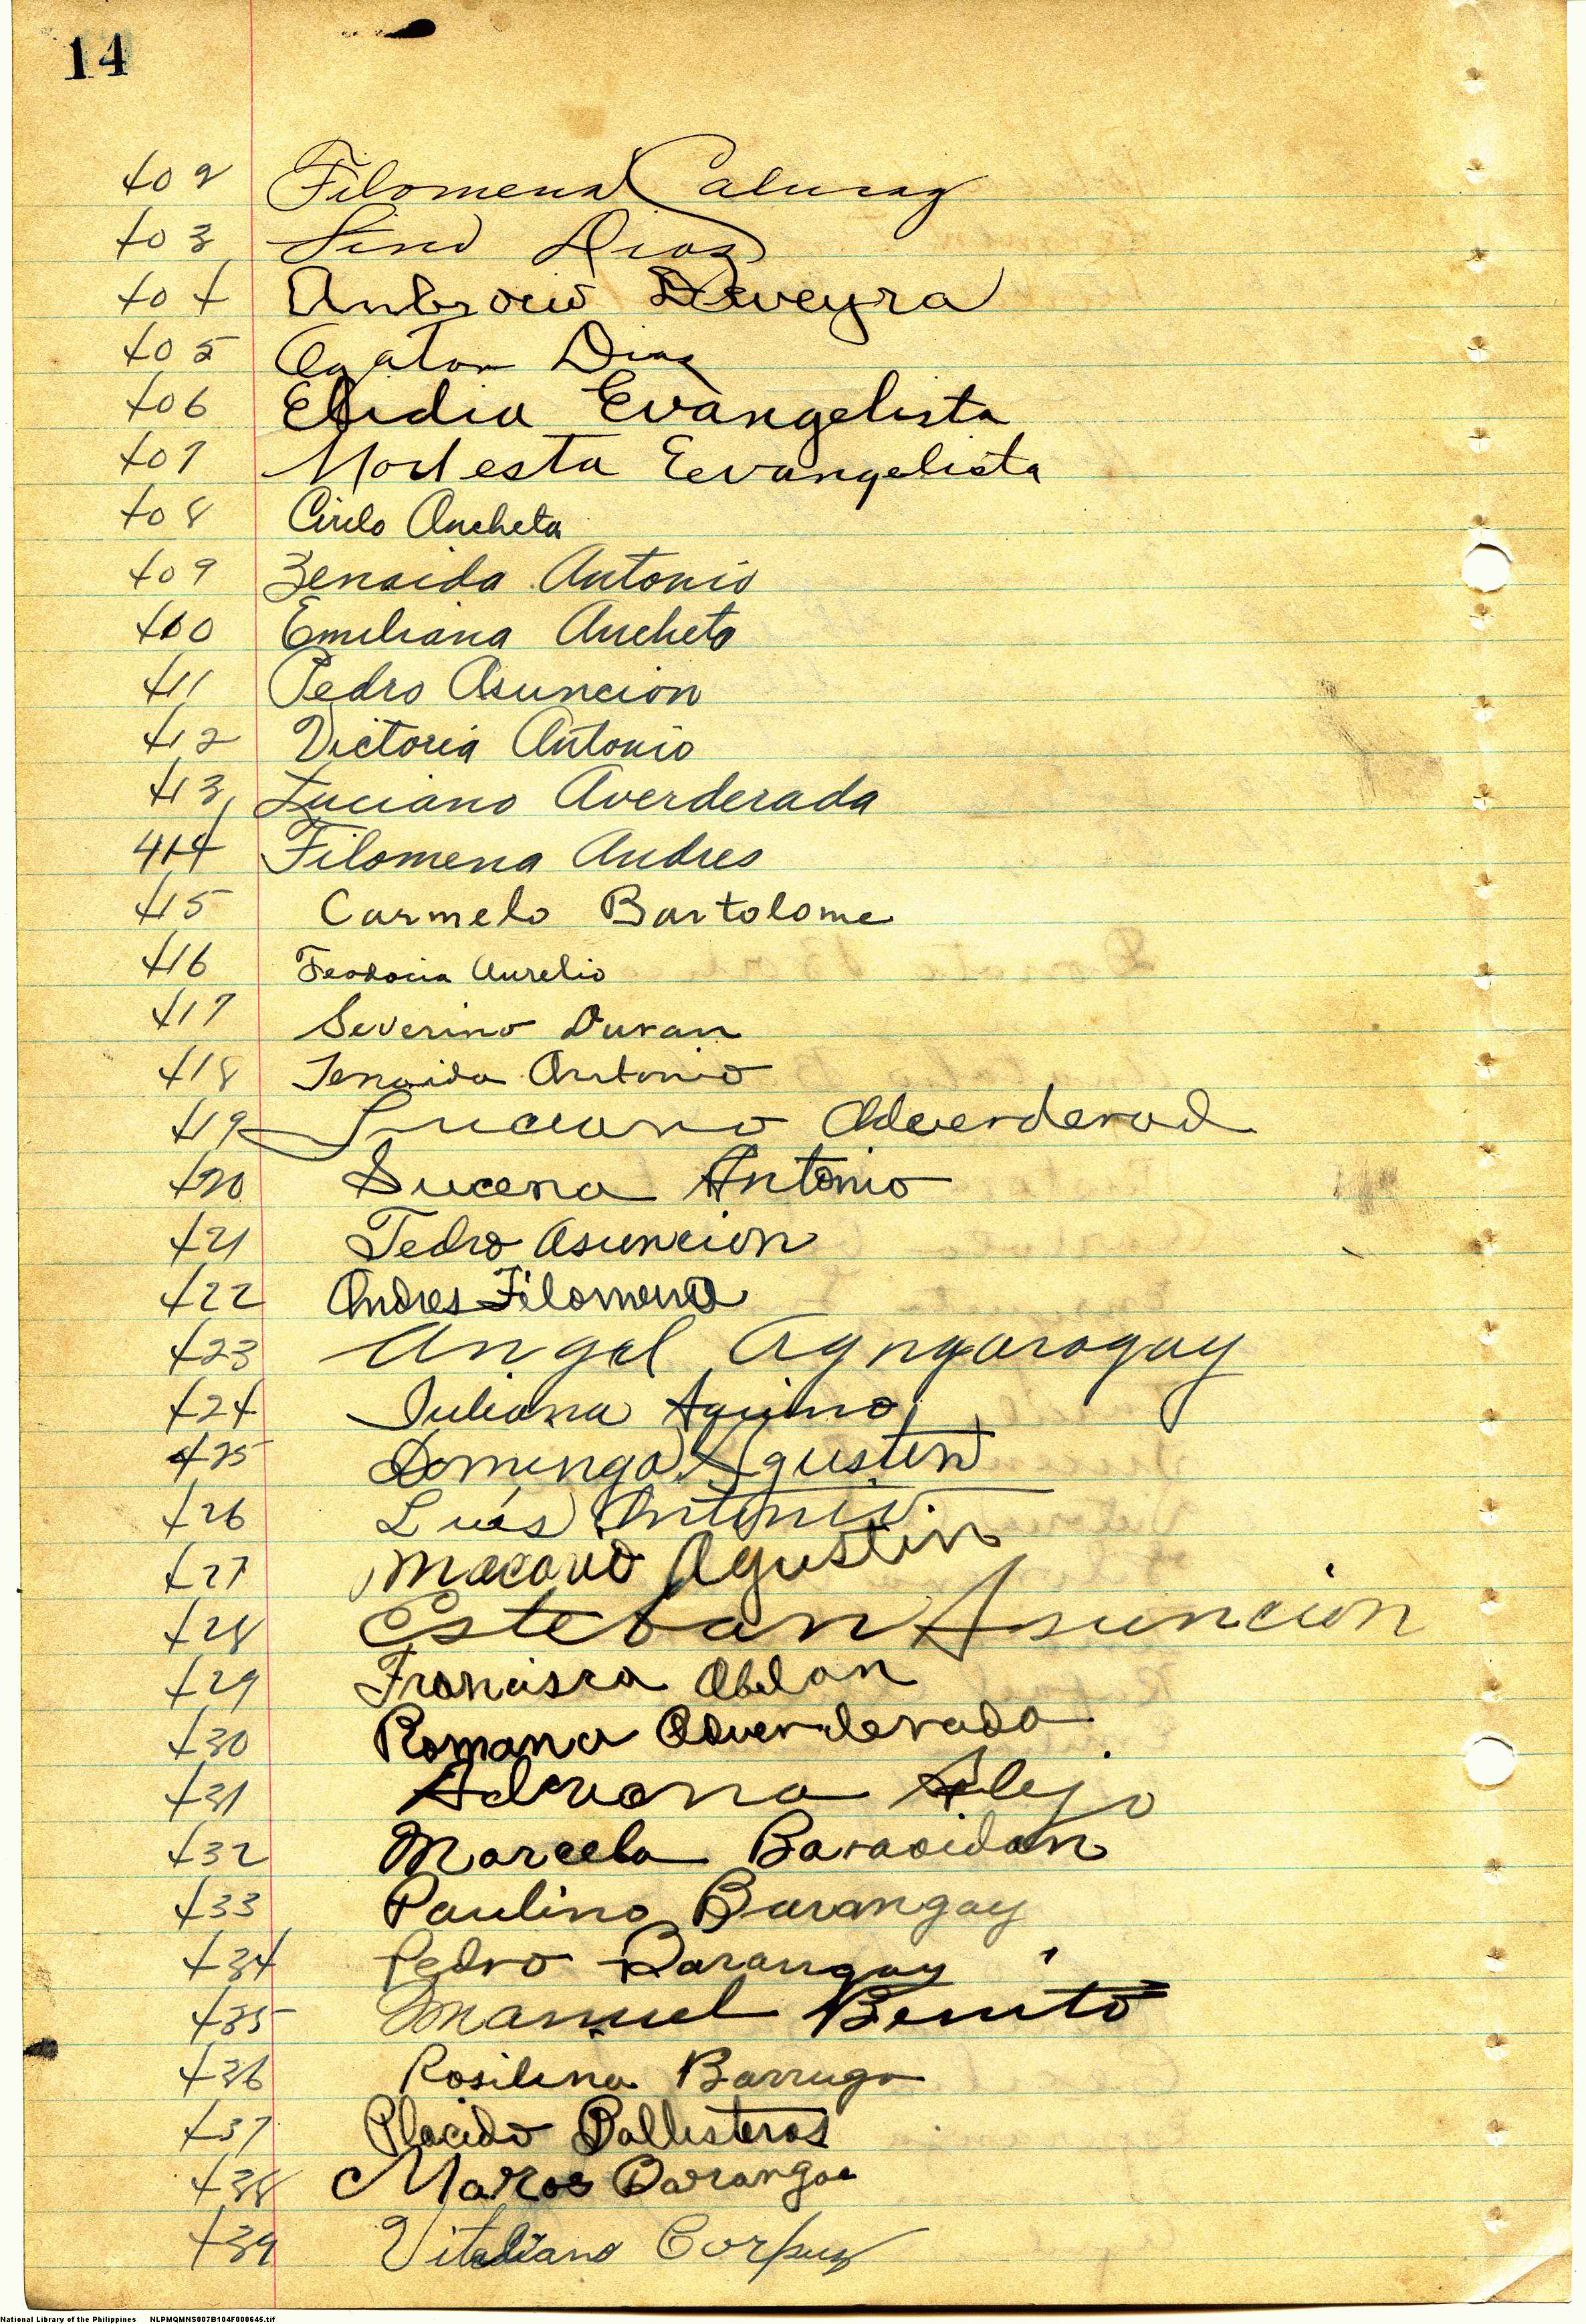 14
402 Filomena Caluray
403 Sino Dias
404 Ambrocio Deveyra
405 Agaton Dias
406 Elidia Evangelista
407 Modesta Eevangelista
408 Cirilo Ancheta
409 Zenaida Antonio
410 Emiliana Ancheta
411 Pedro Asuncion
412 Victoria Antonio
413 Luciano Averderada
414 Filomena Andres
415 Carmelo Bartolome
416 Teodocia Aurelio
417 Severino Duran
418 Zenaida Antonio
419 Luciano Adverderad
420 Sucena Antonio
421 Pedro Asuncion
422 Andres Filomena
423 Angel Agngaragay
424 Juliana Aquino
425 Domingo Agustin
426 Luis Antonio
427 Macario Agustin
428 Esteban Asuncion
429 Francisca Abdon
430 Romana Adverderada
431 Adriana Alejo
432 Marcela Baraoidan
433 Paulino Barangay
434 Pedro Barangay
435 Manuel Benito
436 Rosilina Barruga
437 Placido Ballesteros
438 Marcos Barangae
439 Vitaliano Corpuz
National Library of the Philippines NLPMQMNS007B104F000645.tif